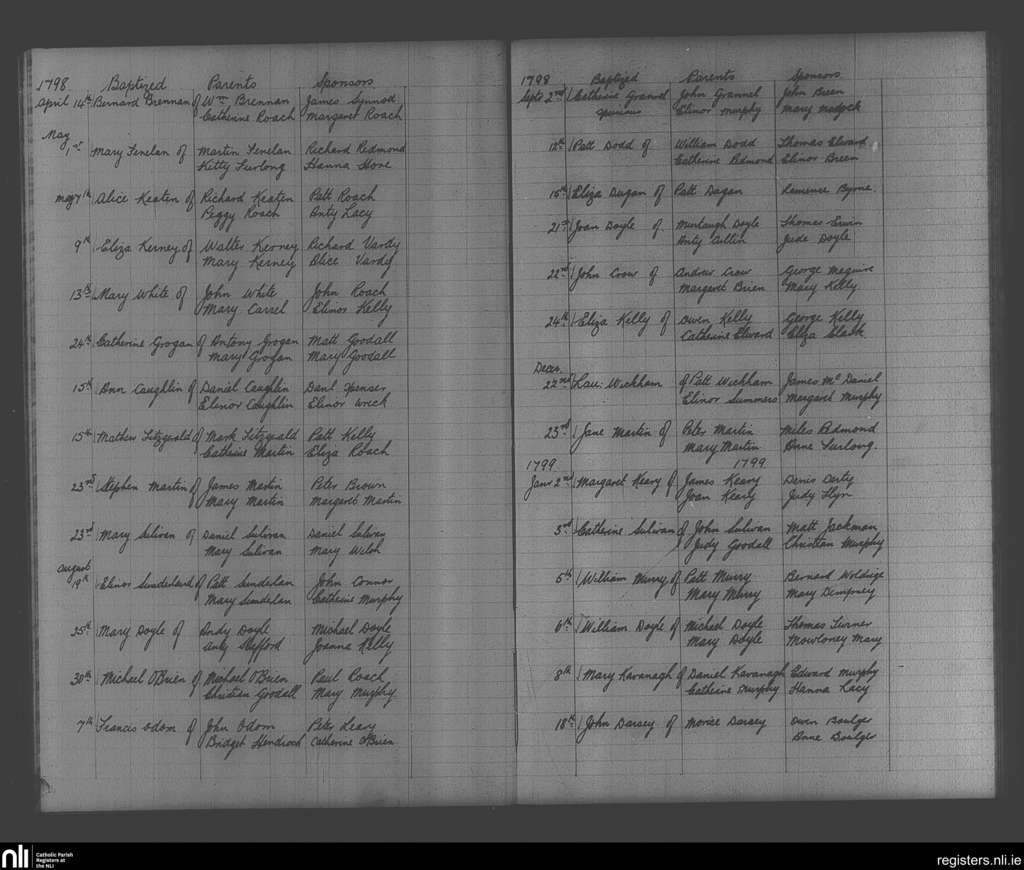 1798 Baptized Parents Sponsors
April 14th Bernard Brennan of Wm Brennan James Synnod
Catherine Roach Margaret Roach
May
1st Mary Fenelan of Martin Fenelan Richard Redmond
Kitty Furlong Hanna Hore
May 7th Alice Keaten of Richard Keaten Patt Roach
Peggy Roach Anty Lacy
9th Eliza Kerney of Walter Kerney Richard Vardy
Mary Kerney Alice Vardy
13th Mary White of John White John Roach
Mary Carrel Elinor Kelly
24th Catherine Grogan of Antony Grogan Matt Goodall
Mary Grogan Mary Goodall
15th Ann Coughlin of Daniel Coughlin Danl Spenser
Elenor Coughlin Elinor Wreck
15th Mathew Fitzgerald of Mark Fitzgerald Patt Kelly
Catherine Martin Eliza Roach
23rd Stephen Martin of James Martin Peter Brown
Mary Martin Margaret Martin
23rd Mary Sulivan of Daniel Sulivan Daniel Sulivan
Mary Sulivan Mary Welsh
August
19th Elinor Sunderland of Patt Sunderlan John Connor
Mary Sunderlan Catherine Murphy
25th Mary Doyle of Andy Doyle Michael Doyle
Anty Stafford Joanna Kelly
30th Michael O'Brien of Michael O'Brien Paul Roach
Christian Goodall Mary Murphy
7th Francis Odom of John Odom Peter Leary
Bridget Hendrock Catherine O'Brien
1798 Baptized Parents Sponsors
Septr 2nd Catherine Grannel John Grannel John Breen
spurious Elinor Murphy Mary Madock
12th Patt Dodd of William Dodd Thomas Elward
Catherine Redmond Elinor Breen
15th Eliza Dugan of Patt Dagan Lawrence Byrne
21st Joan Doyle of Murtaugh Doyle Thomas Erwin
Anty Cullin Jude Doyle
22nd John Crow of Andrew Crow George Maguire
Margaret Brien Mary Kelly
24th Eliza Kelly of Owen Kelly George Kelly
Catherine Elward Eliza Clark
Decr.
22nd Lau: Wickham of Patt Wickham James Mc Daniel
Elinor Summers Margaret Murphy
23rd Jane Martin of Peter Martin Miles Redmond
Mary Martin Anne Furlong.
1799 1799
Janr 2nd Margaret Keary of James Keary Denis Darty
Joan Keary Judy Flyn
3rd Catherine Sulivan of John Sulivan Matt Jackman
Judy Goodall Christian Murphy
5th William Murry of Patt Murry Bernard Woldrige
Mary Murry Mary Dempsey
6th William Doyle of Michael Doyle Thomas Turner
Mary Doyle Mowloney Mary
8th Mary Kavanagh of Daniel Kavanagh Edward Murphy
Catherine Murphy Hanna Lacy
18th John Darsey of Morice Darsey Owen Boulger
Anne Boulger
nli Catholic Parish
Registers at
the NLI
registers.nli.ie